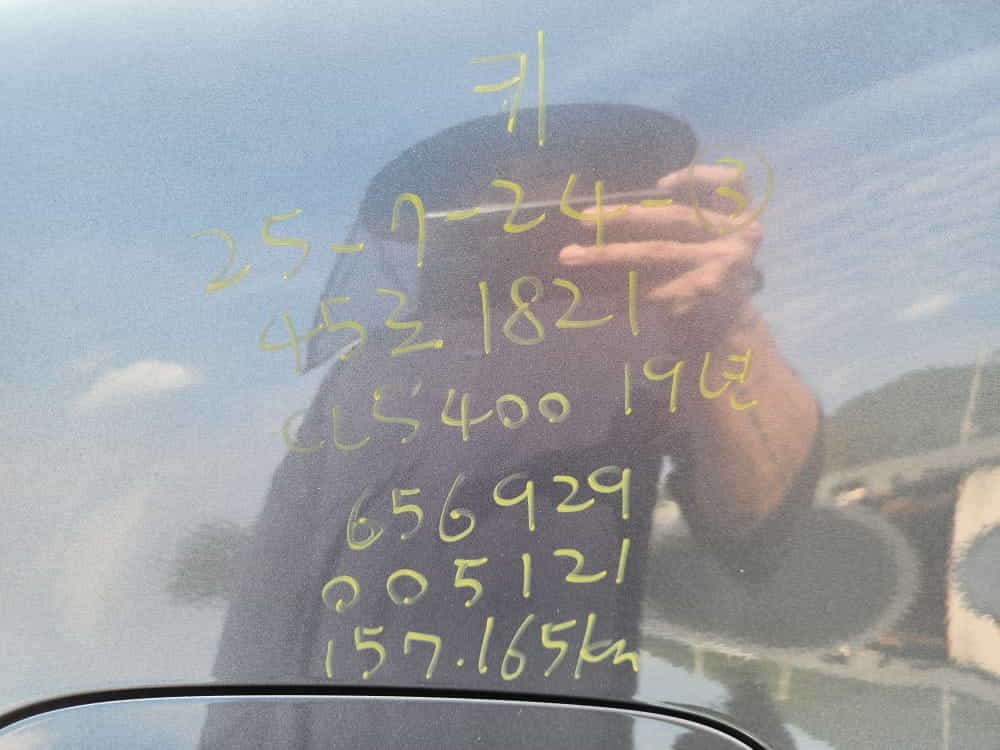 키
25-7-24-③
45로 1821
CLS400 19년
656929
005121
157.165km